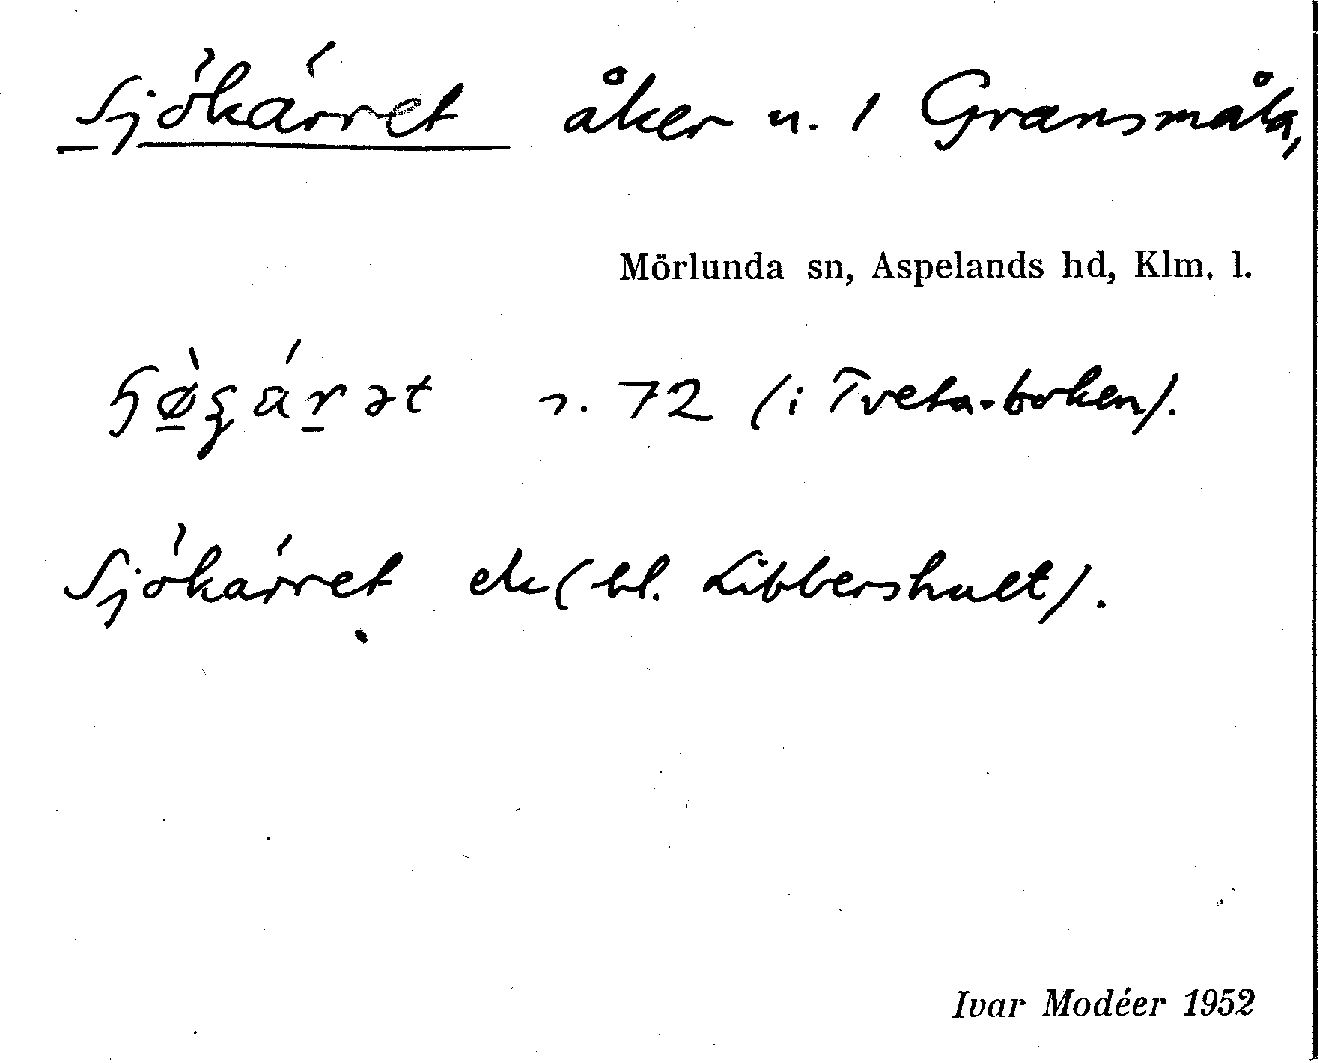 Sjökärret åker u. 1 Gransmåla,
Mörlunda sn, Aspelands hd, Klm. l.
s. 72 (i Tveta-boken).
Sjökärret ek (bl. Libbershult).
Ivar Modéer 1952